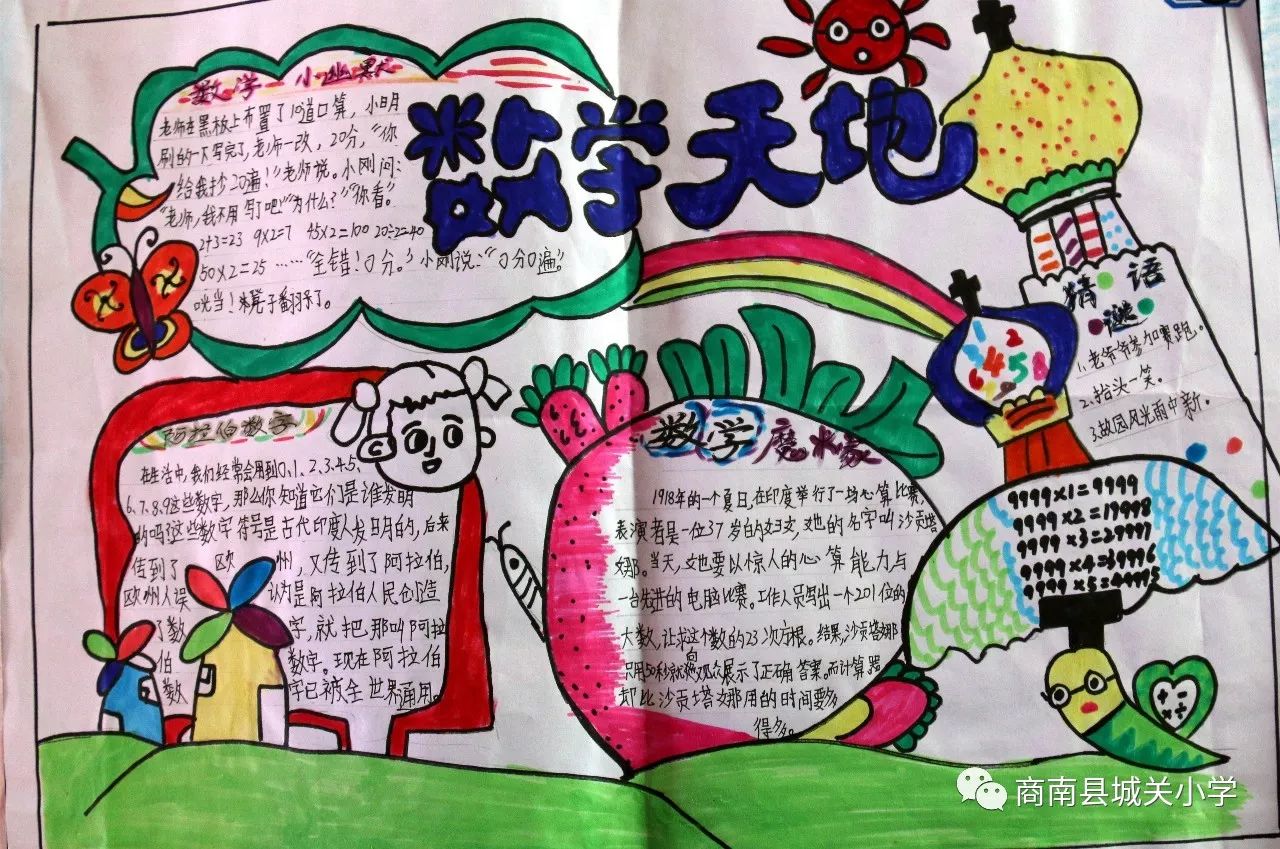 数学天地
数学小幽默
老师在黑板上布置了10道口算，小明
刷的一下写完了，老师一改，20分，“你
给我抄20遍！”老师说。小刚问：
“老师，我不用写了吧！”“为什么？”“你看”
2+3=23 9×2=7 45×2=100 20÷2=40
50×2=25 ……“全错！0分。”小刚说：“0分0遍”。
咣当！凳子翻了。
阿拉伯数字
在生活中，我们经常会用到0、1、2、3、4、5、
6、7、8、9这些数字，那么你知道它们是谁发明
的吗？这些数字符号是古代印度人发明的，后来
传到了 欧 州，又传到了阿拉伯，
欧州人误 认为是阿拉伯人民创造
了数 字，就把那叫阿拉
伯 数字。现在阿拉伯
数 字已被全世界通用。
数学魔术家
1918年的一个夏日，在印度举行了一场心算比赛，
表演者是一位37岁的妇女，她的名字叫沙贡塔
娜。当天，她要以惊人的心算能力，与
一台先进的电脑比赛。工作人员写出一个201位的
大数，让求这个数的23次方根。结果，沙贡塔娜
只用50秒就向观众展示了正确答案。而计算器
却比沙贡塔娜用的时间要多
得多。
猜谜语
1、老爷爷参加赛跑。
2、抬头一笑。
3、故园风光雨中新。
1 2 4 5 8
9999×1=9999
9999×2=19998
9999×3=29997
9999×4=39996
9999×5=49995
+ −
× ÷
商南县城关小学